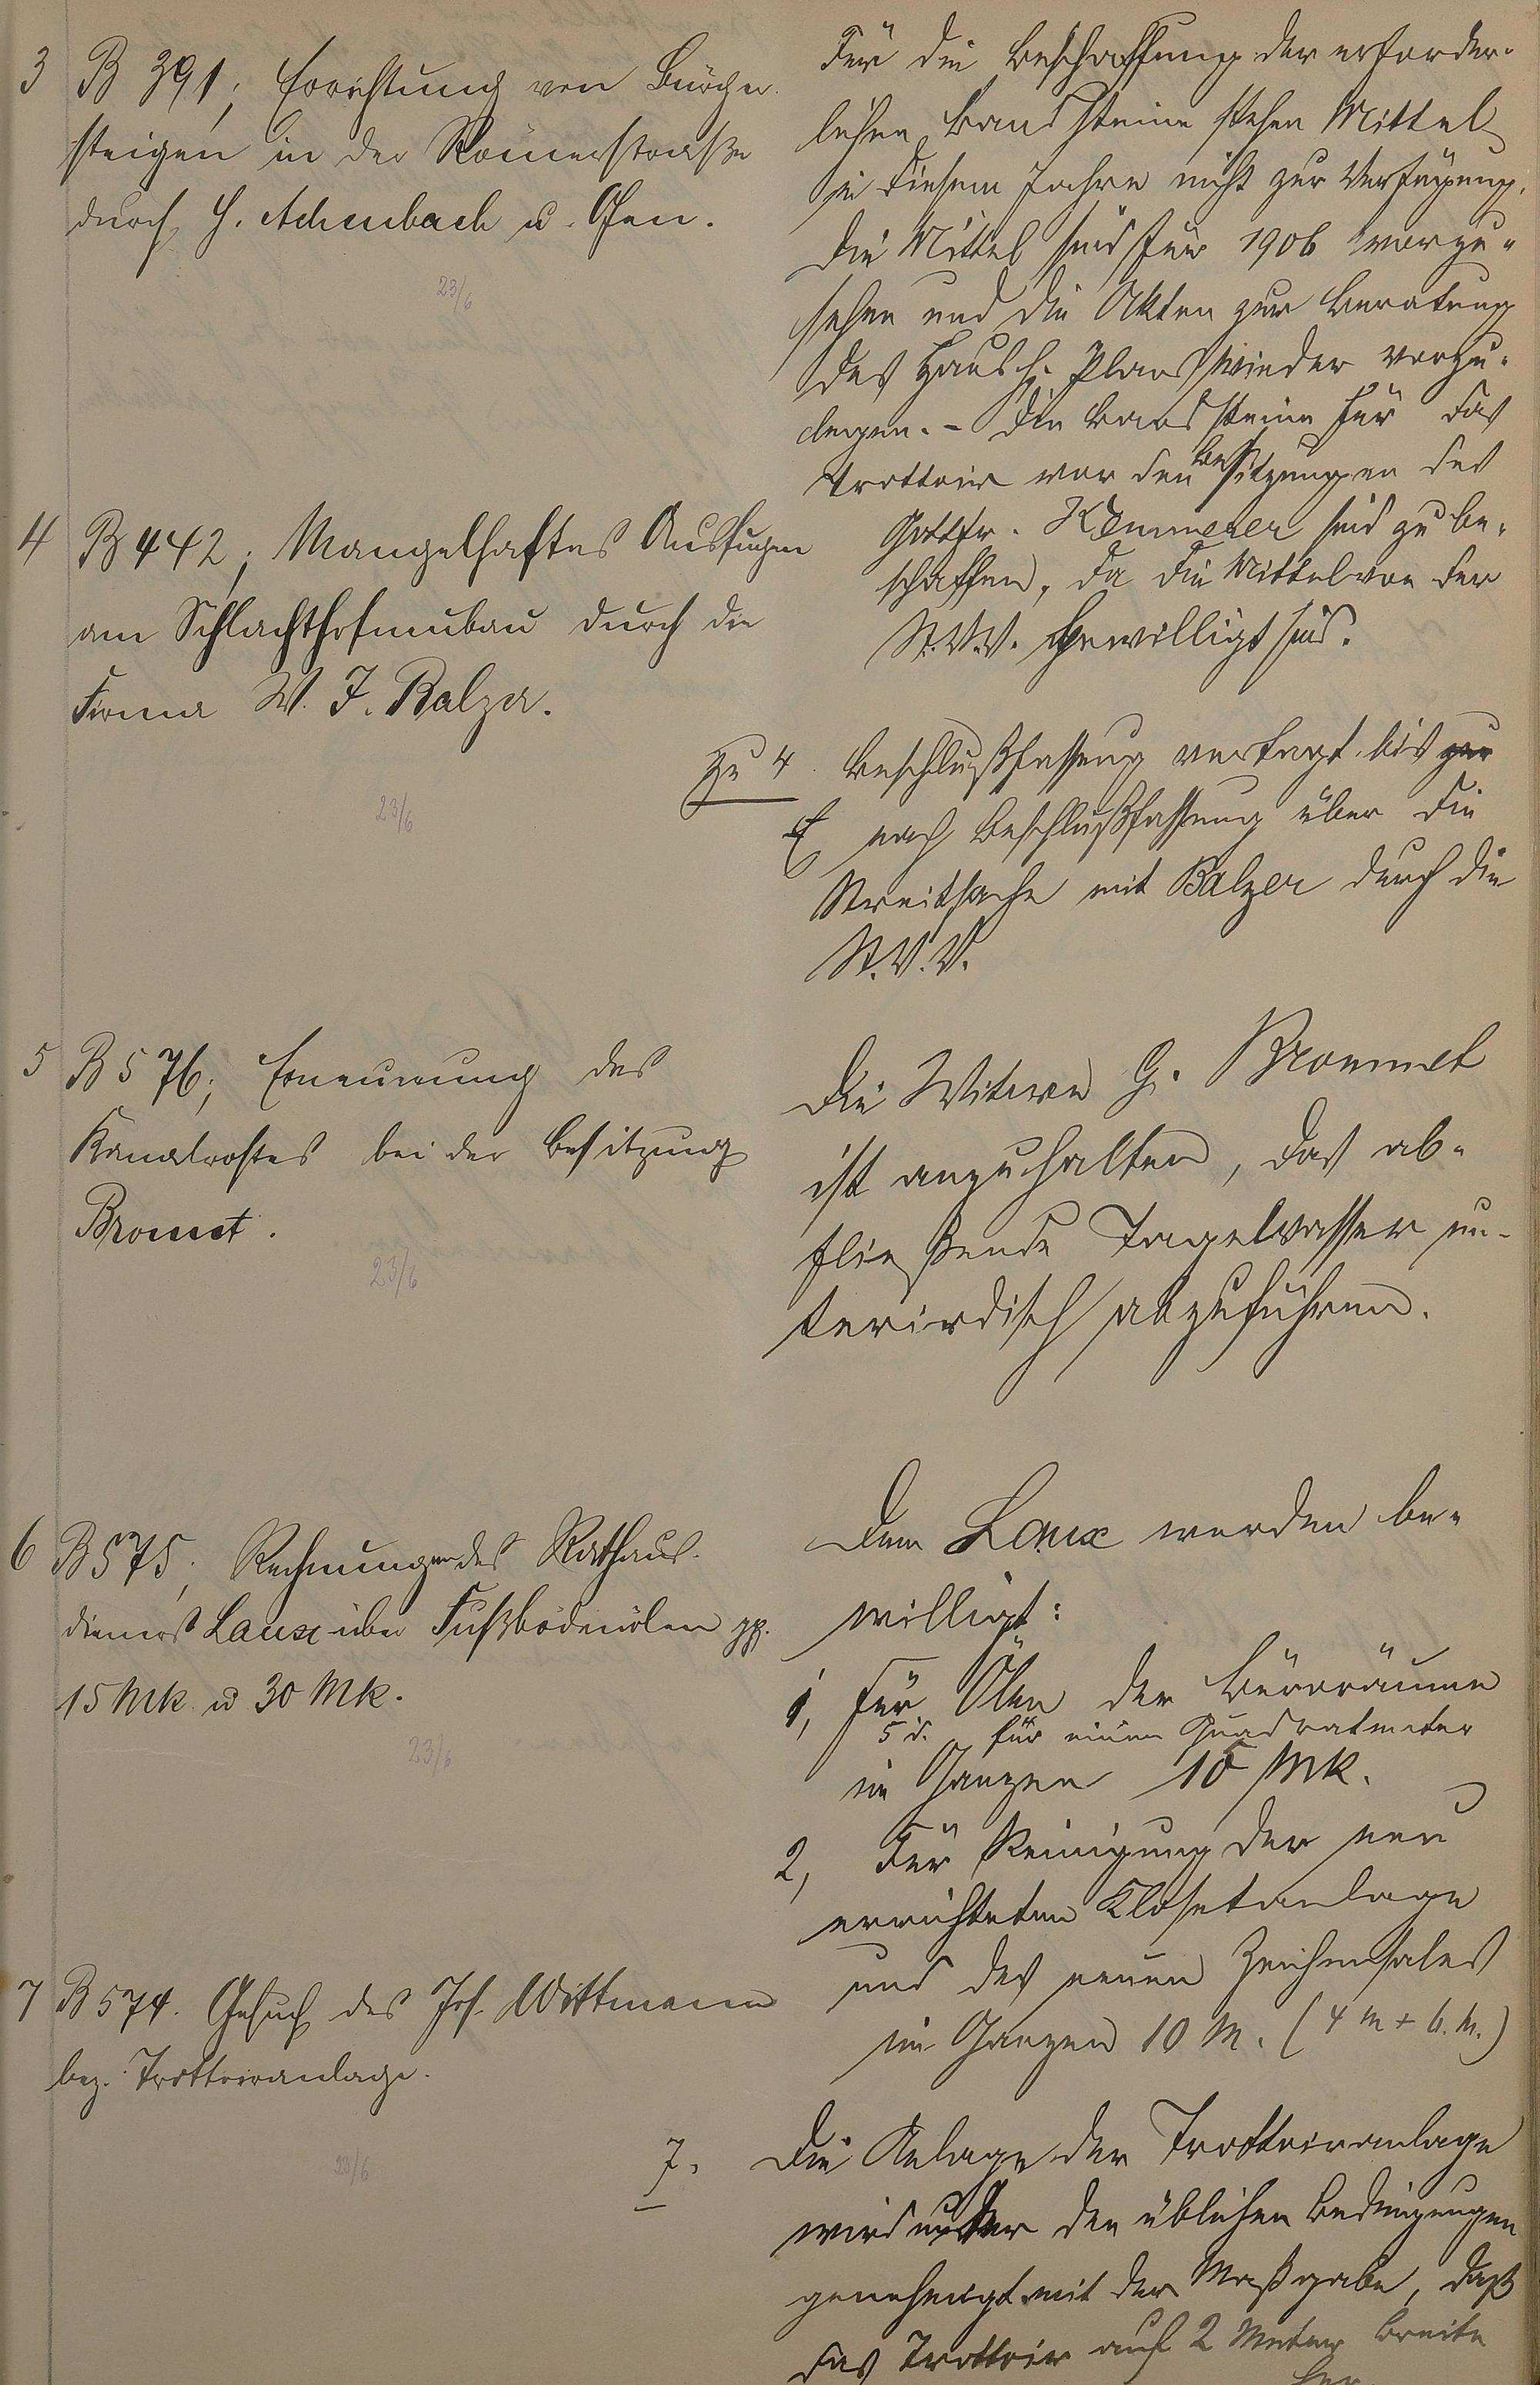 3 B 391; Errichtung von Bürger-
steigen in der Römerstraße
durch H. Achenbach u. Gen.
23/6
Für die Beschaffung der erforder-
lichen Bandsteine stehen Mittel
in diesem Jahre nicht zur Verfügung.
Die Mittel sind für 1906 vorzu-
sehen und die Akten zur Beratung
des Haush. Plans wieder vorzu-
legen. - Die Bandsteine für das
Trottoir vor den Besitzungen des
Gottfr. Kemmerer sind zu be-
schaffen, da die Mittel von der
St.V.V. bewilligt sind.
4 B 442; Mangelhaftes Ausfugen
am Schlachthofneubau durch die
Firma W. J. Balzer.
23/6
Zu 4. Beschlußfassung vertagt bis zur
nach Beschlußfassung über die
Streitsache mit Balzer durch die
St.V.V.
5 B 576; Erneuerung des
Kanalrostes bei der Besitzung
Bromet.
23/6
Die Witwe G. Brommet
ist anzuhalten, das ab-
fließende Tagelwasser un-
terirdisch abzuführen.
6 B 575; Rechnungen des Rathaus-
dieners Laux über Fußbödenölen pp.
15 Mk. u 30 Mk.
23/6
Dem Laux werden be-
willigt:
1, Für Ölen der Büroräume
5 d. für einen Quadratmeter
im Ganzen 15 Mk.
2, Für Reinigung der neu
errichteten Klosetanlage
und des neuen Zeichensales
im Ganzen 10 M. (4 M + 6 M.)
7 B 574. Gesuch des Jos. Wittmann
bez. Trottoiranlage.
23/6
7. Die Anlage der Trottoiranlage
wird unter den üblichen Bedingungen
genehmigt mit der Maßgabe, daß
das Trottoir auf 2 Meter Breite